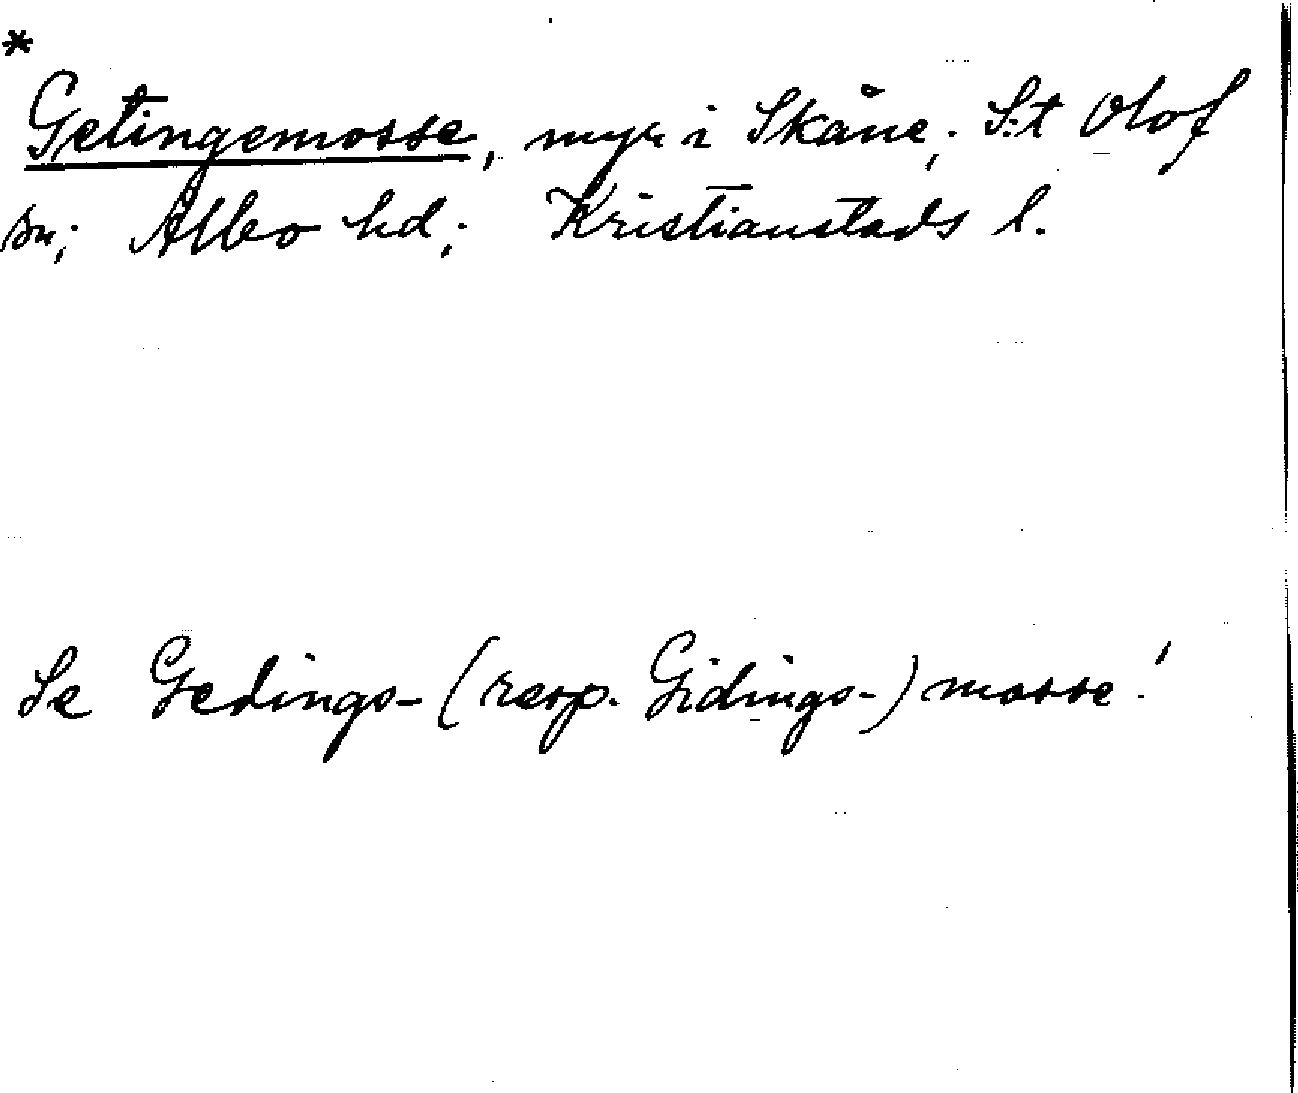 *
Getingemosse, myr i Skåne; S:t Olof
sn; Albo hd; Kristianstads l.
Se Gedings- (resp. Gidings-) mosse!